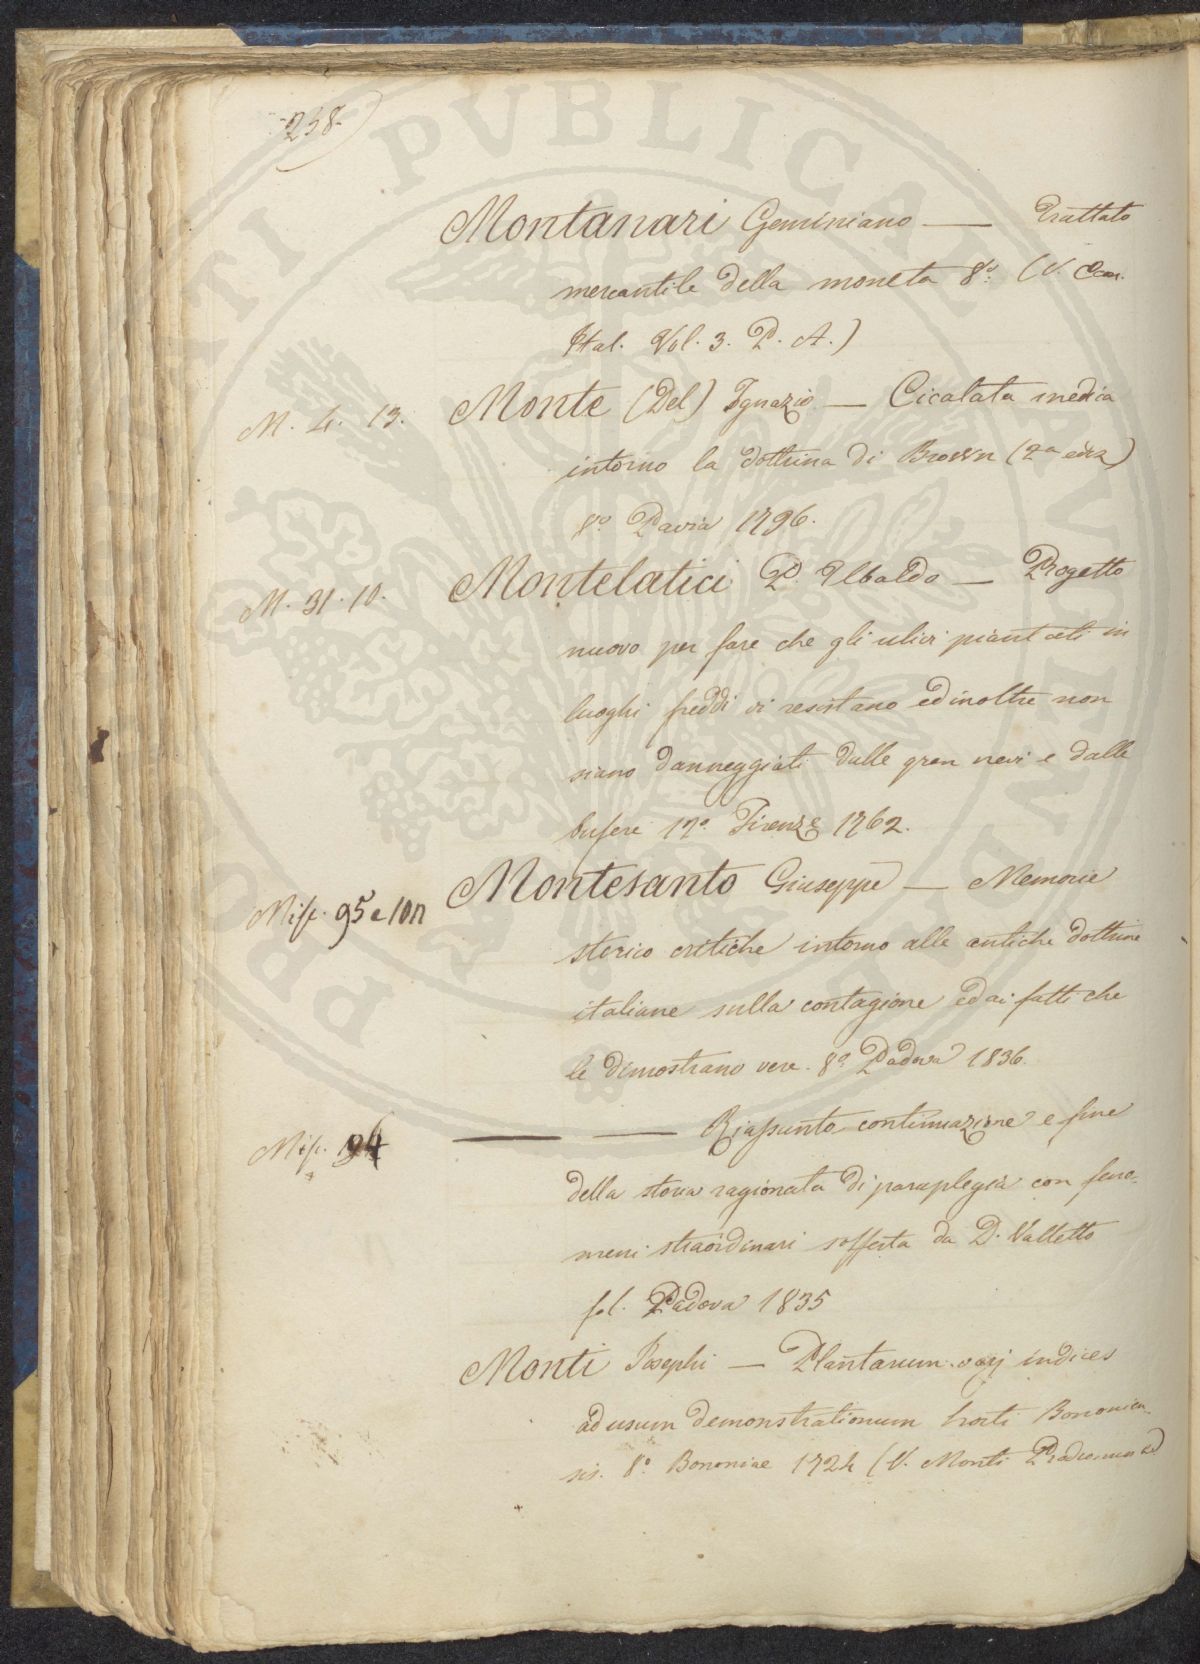 238.
Montanari Geminiano — Trattato
mercantile della moneta 8.o (V.
Ital. Vol. 3. P. A.)
M. 4. 13. Monte (Del) Ignazio — Cicalata medica
intorno la dottrina di Brown (2a ediz)
8o Pavia 1796.
M. 31. 10. Montelatici P. Ubaldo — Progetto
nuovo per fare che gli ulivi piantati in
luoghi freddi vi resistano ed inoltre non
siano danneggiati dalle gran nevi e dalle
bufere 12o Firenze 1762.
Misc. 95 e Montesanto Giuseppe — Memorie
storico critiche intorno alle antiche dottrine
italiane sulla contagione ed ai fatti che
le dimostrano vere. 8o Padova 1836.
Misc. — — Riassunto continuazione e fine
della storia ragionata di paraplegia con feno-
meni straordinari sofferta da D. Valletto
fol. Padova 1835
Monti Josephi — Plantarum varj indices
ad usum demonstrationum horti Bononien-
sis. 8o Bononiae 1724 (V. Monti Prodromus